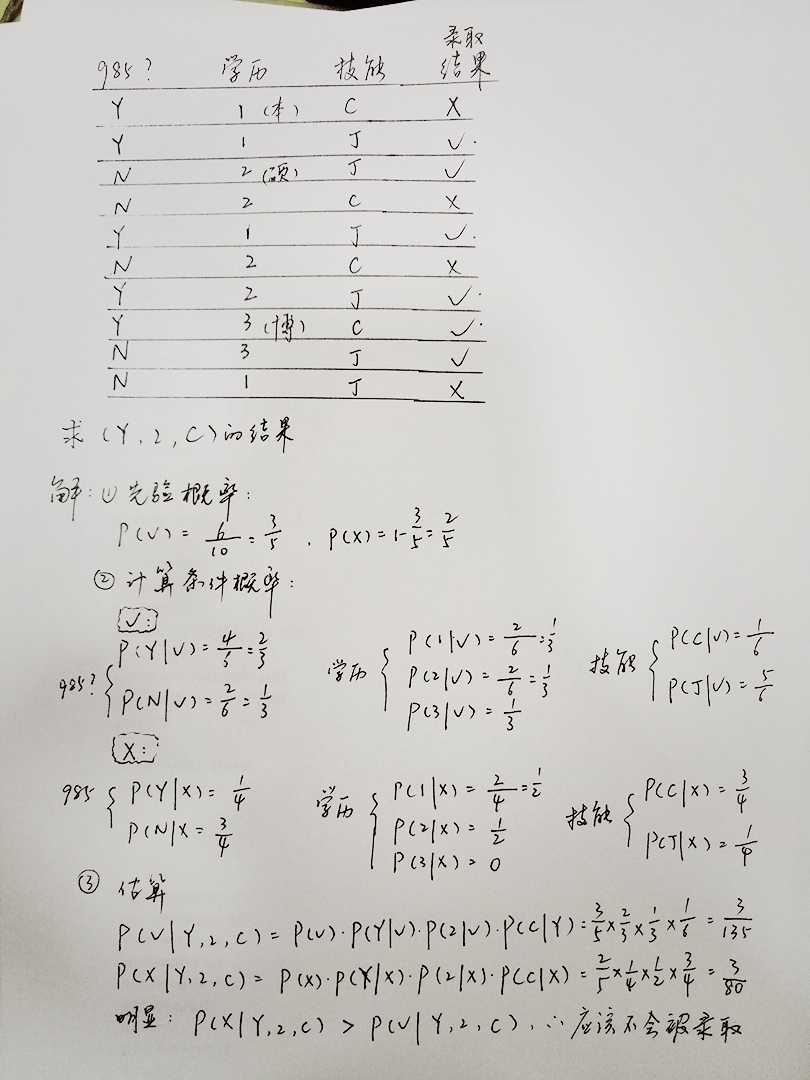 985? 学历 技能 录取结果
Y 1(本) C X
Y 1 J ✓
N 2(硕) J ✓
N 2 C X
Y 1 J ✓
N 2 C X
Y 2 J ✓
Y 3(博) C ✓
N 3 J ✓
N 1 J X
求 (Y, 2, C) 的结果
解: ① 先验概率:
P(✓) = 6/10 = 3/5 , P(X) = 1-3/5 = 2/5
② 计算条件概率:
✓:
985? { P(Y|✓) = 4/6 = 2/3
P(N|✓) = 2/6 = 1/3
学历 { P(1|✓) = 2/6 = 1/3
P(2|✓) = 2/6 = 1/3
P(3|✓) = 1/3
技能 { P(C|✓) = 1/6
P(J|✓) = 5/6
X:
985 { P(Y|X) = 1/4
P(N|X = 3/4
学历 { P(1|X) = 2/4 = 1/2
P(2|X) = 1/2
P(3|X) = 0
技能 { P(C|X) = 3/4
P(J|X) = 1/4
③ 估算
P(✓|Y,2,C) = P(✓)·P(Y|✓)·P(2|✓)·P(C|Y) = 3/5 × 2/3 × 1/3 × 1/6 = 3/135
P(X|Y,2,C) = P(X)·P(Y|X)·P(2|X)·P(C|X) = 2/5 × 1/4 × 1/2 × 3/4 = 3/80
明显: P(X|Y,2,C) > P(✓|Y,2,C), ∴ 应该不会被录取